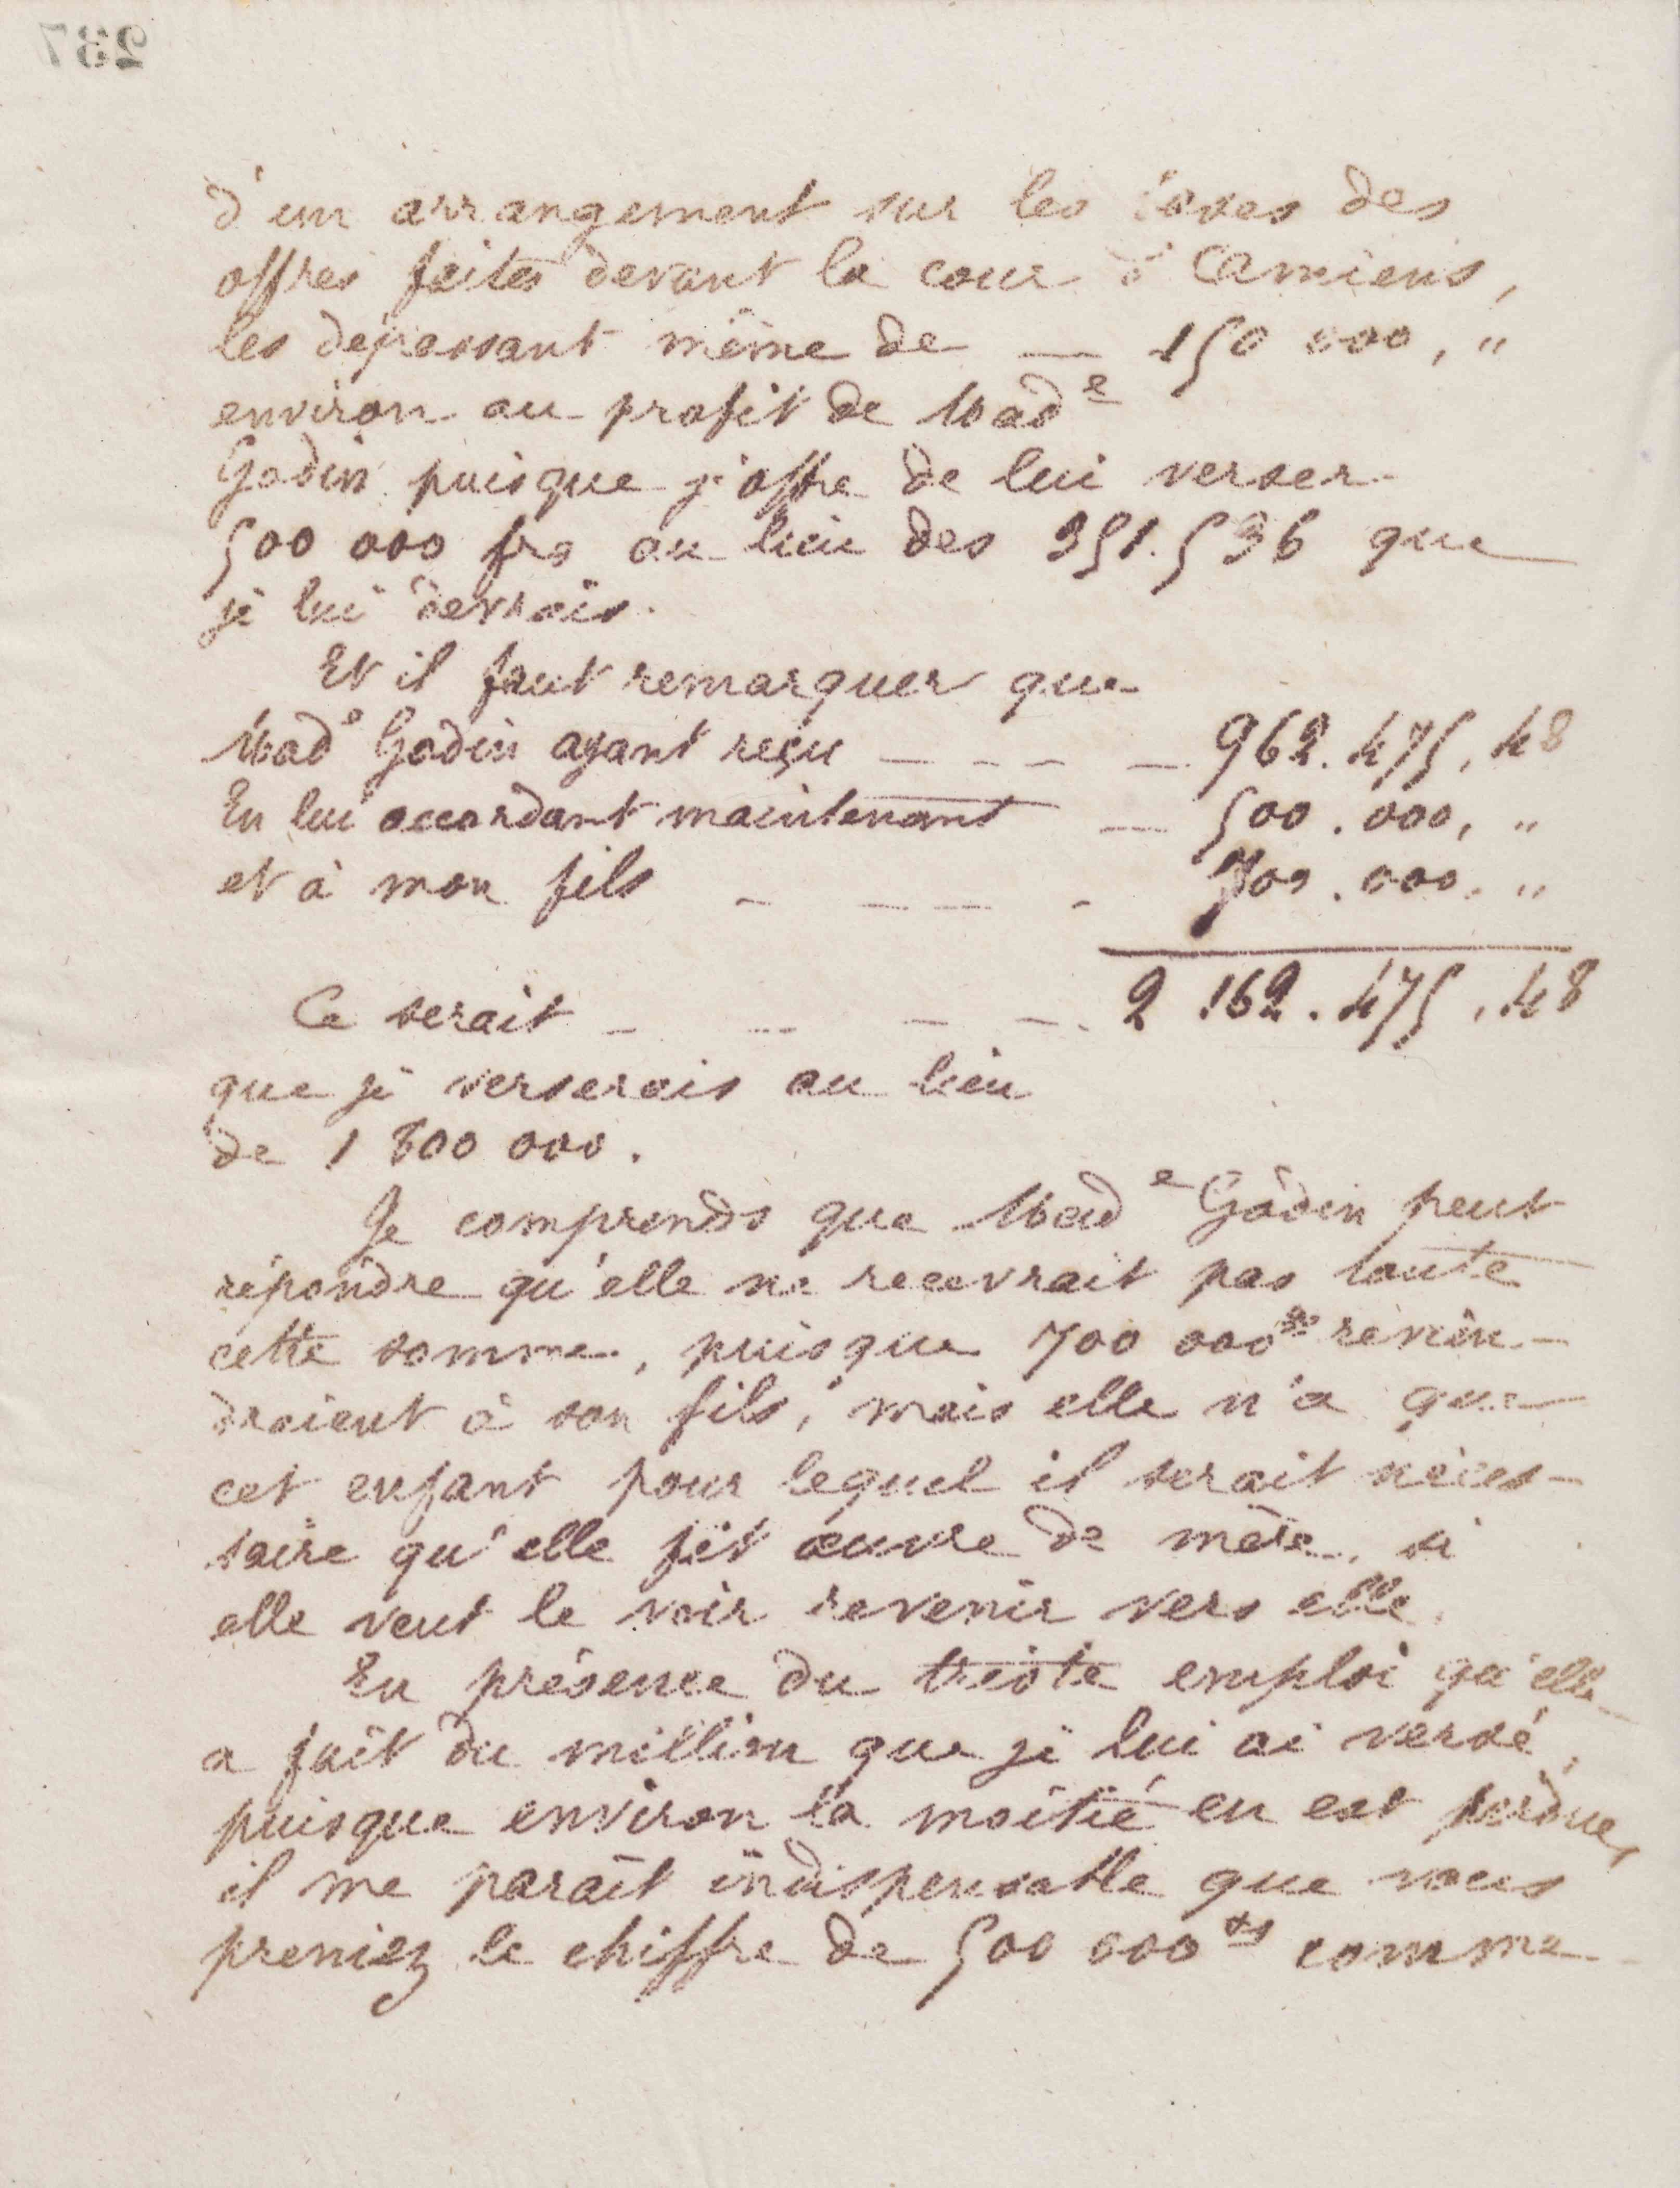 237
d'un arrangement sur les bases des
offres faites devant la cour d'Amiens,
les dépassant même de — 150 000, "
environ au profit de Mad^e
Godin puisque j'offre de lui verser
500 000 frs au lieu des 351.536 que
je lui devrais.
Et il faut remarquer que
Mad^e Godin ayant reçu — — — — 962.475,48
En lui accordant maintenant — 500.000, "
et à mon fils — — — — 700.000, "
Ce serait — — — — 2.162.475,48
que je verserais au lieu
de 1 800 000.
Je comprends que Mad^e Godin peut
répondre qu'elle ne recevrait pas toute
cette somme, puisque 700 000 frs revien-
draient à son fils, mais elle n'a que
cet enfant pour lequel il serait néces-
saire qu'elle fit œuvre de mère, si
elle veut le voir revenir vers elle.
En présence du triste emploi qu'elle
a fait du million que je lui ai versé,
puisque environ la moitié en est perdue,
il me paraît indispensable que vous
preniez le chiffre de 500 000 frs comme